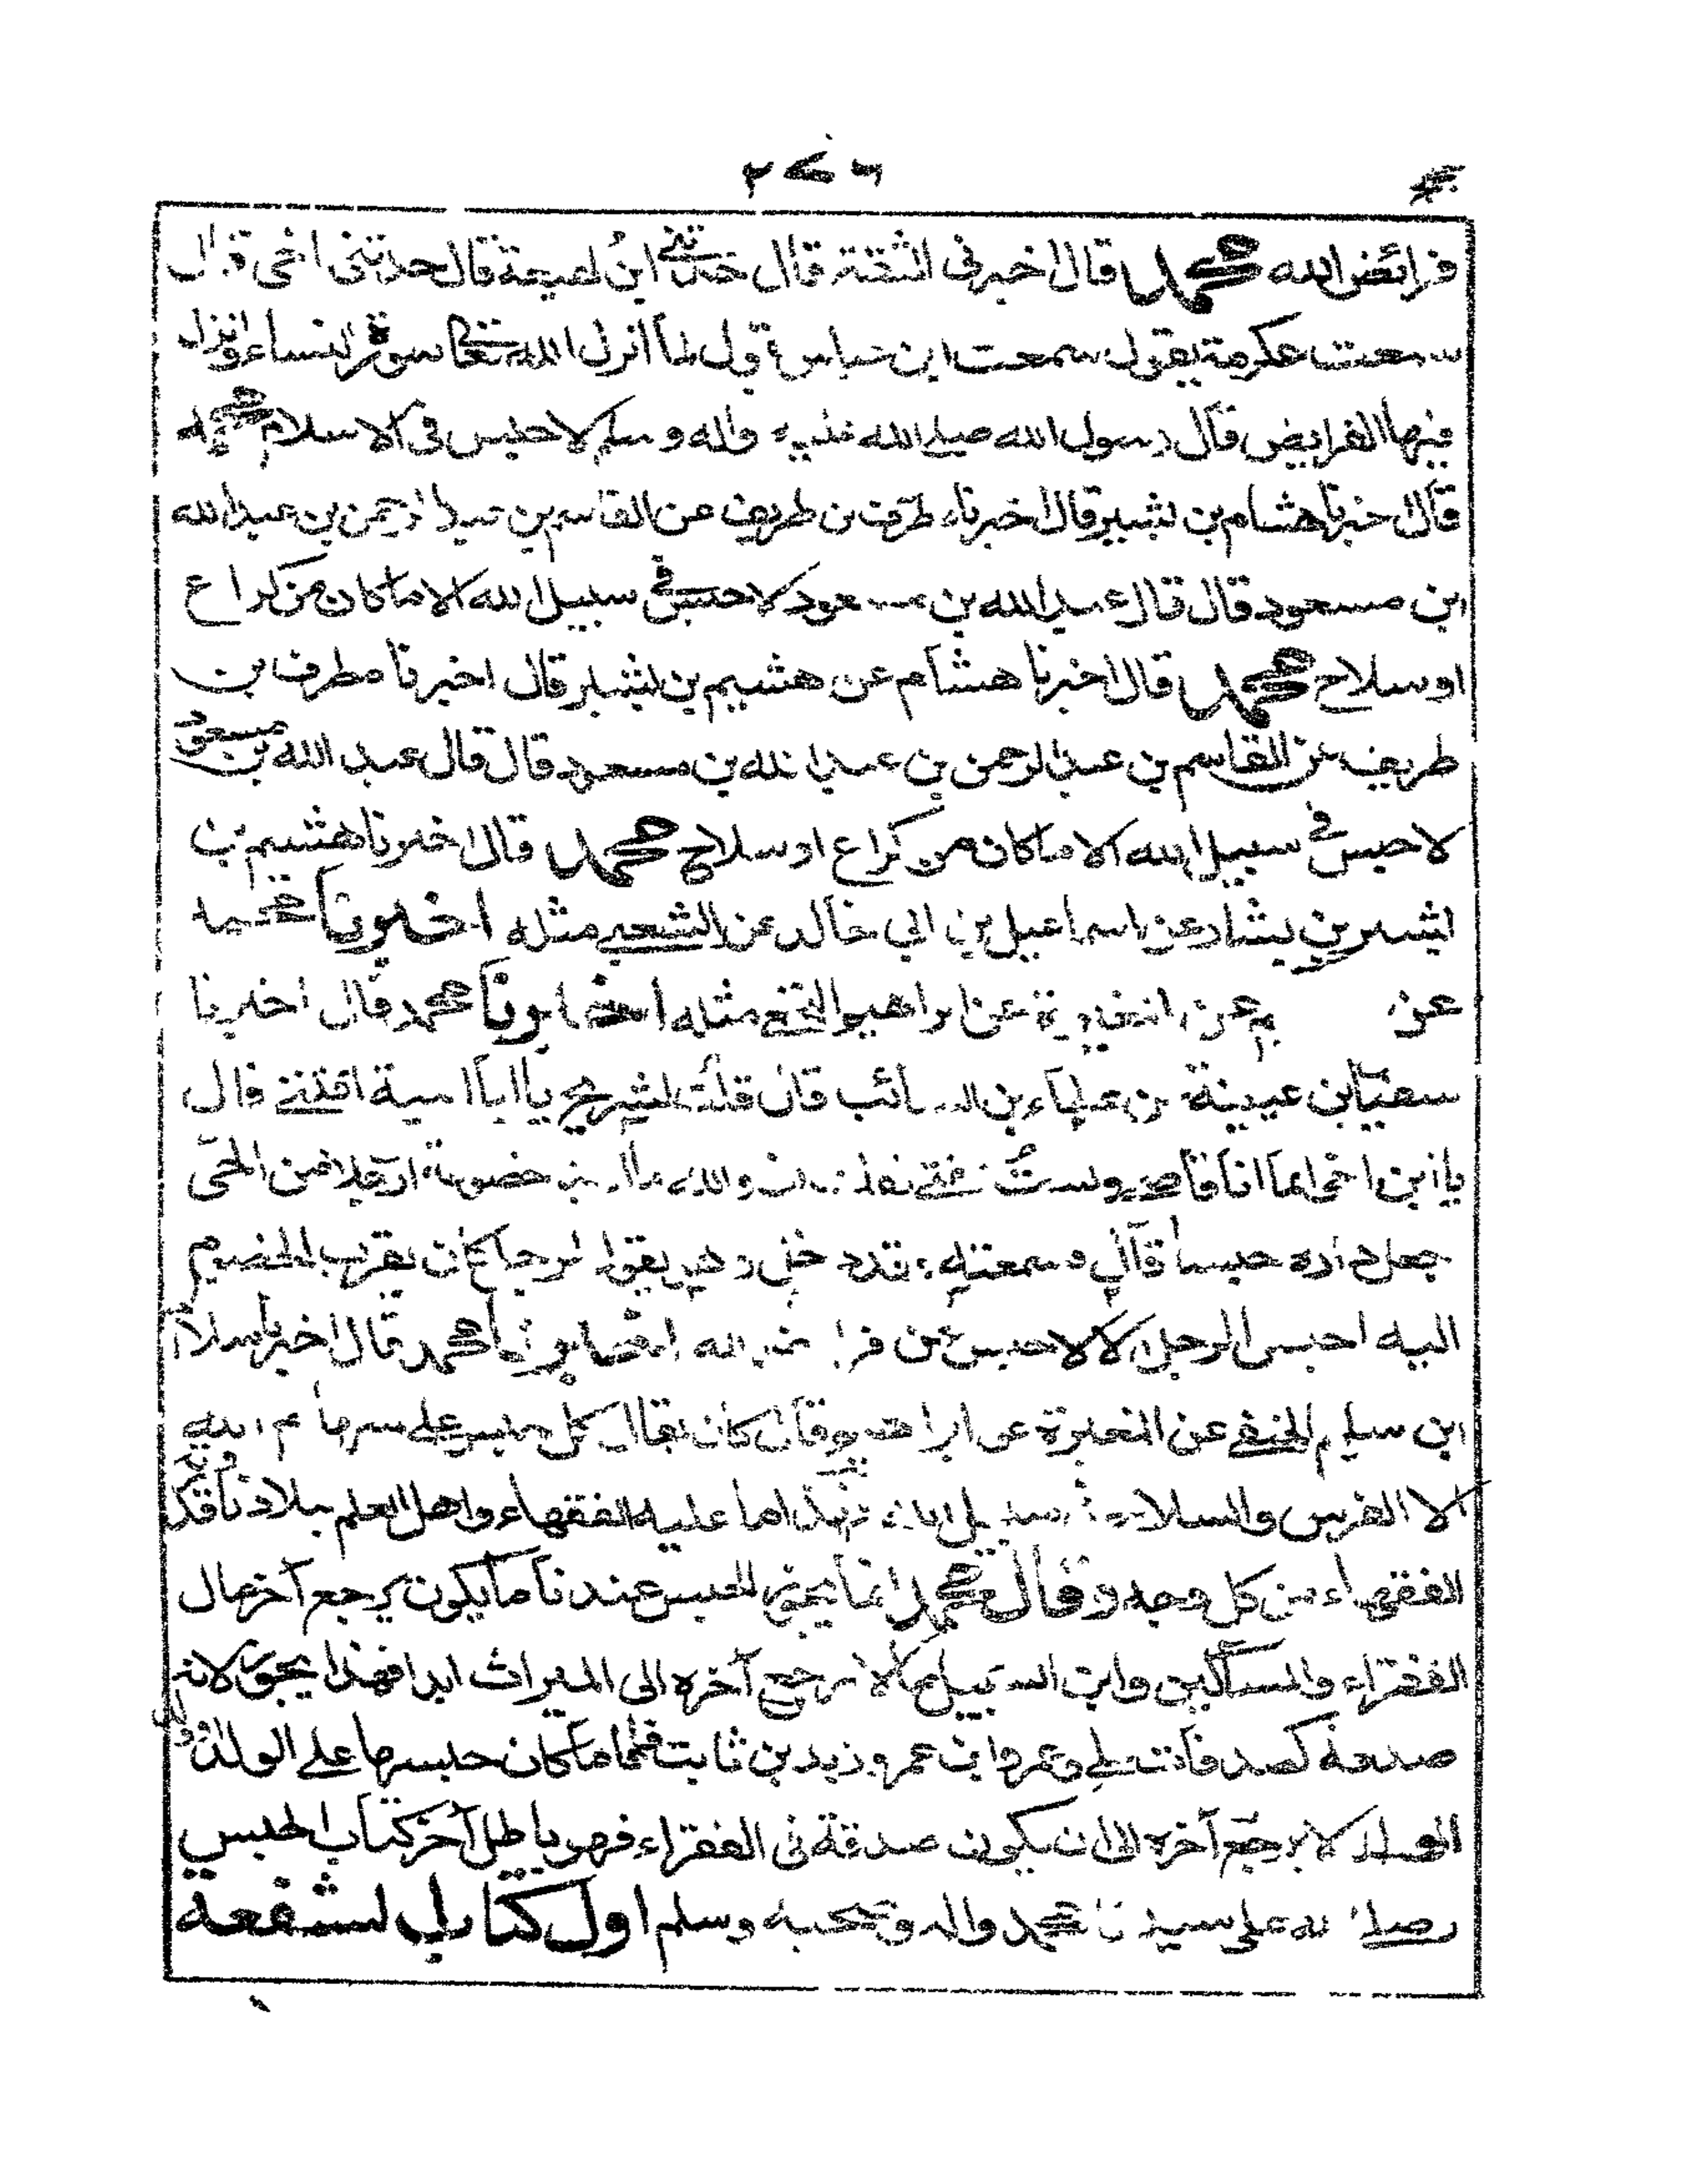 ٢٧٦
فرائض الله محمد قال اخبرني الثقة قال حدثني ابن لهيعة قال حدثني اخي قال
سمعت عكرمة يقول سمعت ابن عباس يقول لما انزل الله تعالى سورة النساء وانزل
فيها الفرايض قال رسول الله صلى الله عليه واله وسلم لا حبس في الاسلام محمد
قال اخبرنا هشام بن بشير قال اخبرنا مطرف بن طريف عن القاسم بن عبد الرحمن بن عبد الله
ابن مسعود قال قال عبد الله بن مسعود لا حبس في سبيل الله الا ما كان من كراع
او سلاح محمد قال اخبرنا هشام عن هشيم بن بشير قال اخبرنا مطرف بن
طريف عن القاسم بن عبد الرحمن بن عبد الله بن مسعود قال قال عبد الله بن مسعود
لا حبس في سبيل الله الا ما كان من كراع او سلاح محمد قال اخبرنا هشيم بن
بشير بن بشار عن اسماعيل بن ابي خالد عن الشعبي مثله اخبرنا محمد
عن عن المغيرة عن ابراهيم النخعي مثله اخبرنا محمد قال اخبرنا
سفيان بن عيينة عن عطاء بن السائب قال قلت لشريح يا ابا امية افتني قال
يا ابن اخي انما انا قاض ولست والله خصومة رجلا من الحي
جعل داره حبسا قال وسمعته يقول لرجل كان يقرب الخصوم
اليه اخبر الرجل ان لا حبس عن فرائض الله اخبرنا محمد قال اخبرنا سلام
ابن سليم الحنفي عن المغيرة عن ابراهيم قال كان يقال كل حبس على سهام الله
الا الفرس والسلاح في سبيل الله فهذا ما عليه الفقهاء واهل العلم ببلادنا
الفقهاء من كل وجه وقال محمد انما يجوز الحبس عندنا ما يكون يرجع آخرها ل
الفقراء والمساكين وابن السبيل مما لا يرجع آخره الى الميراث ابدا فهذا يجوز لانه
صدقة كصدقات علي وعمر وابن عمر وزيد بن ثابت فاما ما كان حبسها على الولد
الولد لا يرجع آخره الى ان يكون صدقة في الفقراء فهو باطل آخر كتاب الحبس
وصلى الله على سيدنا محمد واله وصحبه وسلم اول كتاب الشفعة